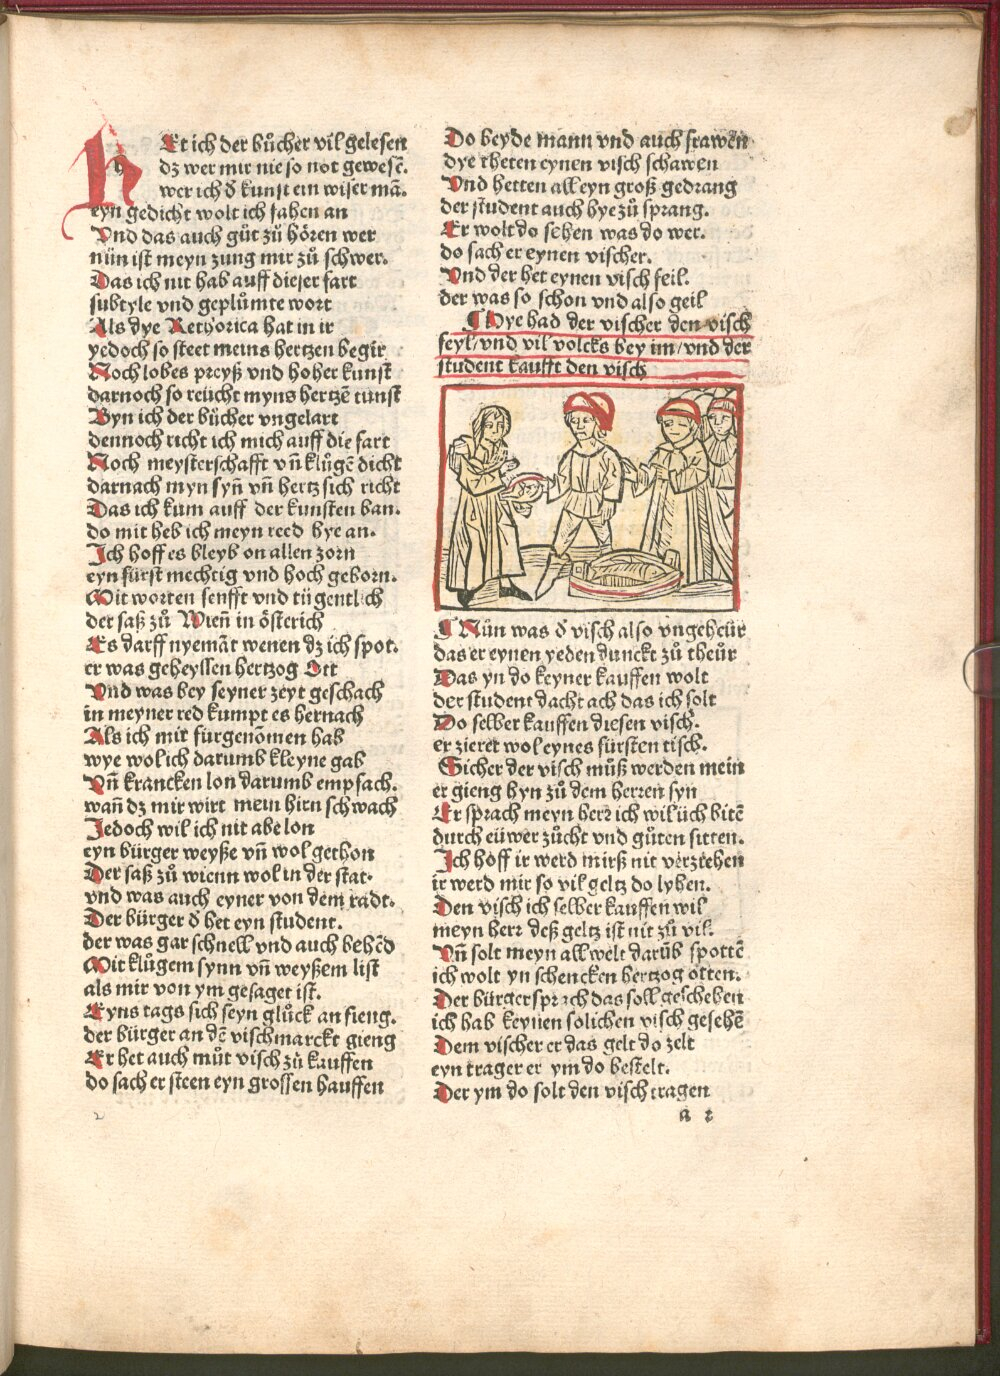 HEt ich der bůcher vil gelesen
dz wer mir nie so not gewesē.
wer ich d̄ kunst ein wiser mā.
eyn gedicht wolt ich fahen an
Vnd das auch gůt zů hören wer
nün ist meyn zung mir zů schwer.
Das ich nit hab auff dieser fart
subtyle vnd geplůmte wort
Als dye Rethorica hat in ir
yedoch so steet meins hertzen begir
Noch lobes preyß vnd hoher kunst
darnoch so reücht myns hertzē tunst
Byn ich der bücher vngelart
dennoch richt ich mich auff die fart
Noch meysterschafft vn̄ klůgē dicht
darnach myn syn̄ vn̄ hertz sich richt
Das ich kum auff der kunsten ban.
do mit heb ich meyn reed hye an.
Ich hoff es bleyb on allen zorn
eyn fürst mechtig vnd hoch geborn.
Mit worten senfft vnd tügentlich
der saß zů Wien̄ in österich
Es darff nyemāt wenen dz ich spot.
er was geheyssen hertzog Ott
Vnd was bey seyner zeyt geschach
in meyner red kumpt es hernach
Als ich mir fürgenomen hab
wye wol ich darumb kleyne gab
Vn̄ krancken lon darumb empfach.
wan̄ dz mir wirt mein hirn schwach
Jedoch wil ich nit abe lon
eyn bürger weyße vn̄ wol gethon
Der saß zů wienn wol in der stat.
vnd was auch eyner von dem radt.
Der bürger d̄ het eyn student.
der was gar schnell vnd auch behēd
Mit klůgem synn vn̄ weyßem list
als mir von ym gesaget ist.
Eyns tags sich seyn glück an fieng.
der bürger an dē vischmarckt gieng
Er het auch můt visch zů kauffen
do sach er steen eyn grossen hauffen
Do beyde mann vnd auch frawen
dye theten eynen visch schawen
Vnd hetten all eyn groß gedrang
der student auch hye zů sprang.
Er wolt do sehen was do wer.
do sach er eynen vischer.
Vnd der het eynen visch feil.
der was so schon vnd also geil
¶ Hye had der vischer den visch
feyl/ vnd vil volcks bey im/ vnd der
student kaufft den visch
¶ Nůn was d̄ visch also vngeheür
das er eynen yeden dunckt zů theür
Das yn do keyner kauffen wolt
der student dacht ach das ich solt
Do selber kauffen diesen visch.
er zieret wol eynes fürsten tisch.
Sicher der visch můß werden mein
er gieng hyn zů dem herren syn
Er sprach meyn herr ich wil üch bitē
durch eüwer zůcht vnd gůten sitten.
Ich hoff ir werd mirß nit verzeehen
ir werd mir so vil geltz do lyhen.
Den visch ich selber kauffen wil
meyn herr deß geltz ist nit zů vil.
Vn̄ solt meyn all welt darūb spottē
ich wolt yn schencken hertzog otten.
Der bürger sprach das soll geschehen
ich hab keynen solichen visch gesehē
Dem vischer er das gelt do zelt
eyn trager er ym do bestelt.
Der ym do solt den visch tragen